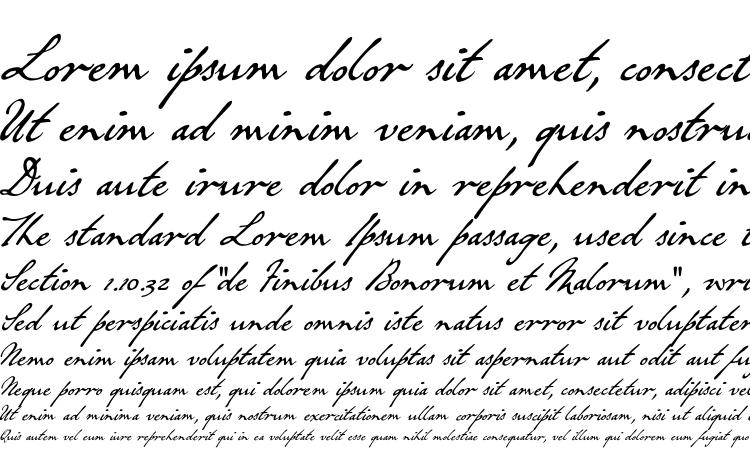 Lorem ipsum dolor sit amet, consect
Ut enim ad minim veniam, quis nostru
Duis aute irure dolor in reprehenderit in
The standard Lorem Ipsum passage, used since t
Section 1.10.32 of "de Finibus Bonorum et Malorum", wri
Sed ut perspiciatis unde omnis iste natus error sit voluptatem
Nemo enim ipsam voluptatem quia voluptas sit aspernatur aut odit aut fug
Neque porro quisquam est, qui dolorem ipsum quia dolor sit amet, consectetur, adipisci ve
Ut enim ad minima veniam, quis nostrum exercitationem ullam corporis suscipit laboriosam, nisi ut aliquid
Quis autem vel eum iure reprehenderit qui in ea voluptate velit esse quam nihil molestiae consequatur, vel illum qui dolorem eum fugiat quo